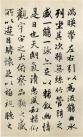 湍暎帶左右引以為流
觴曲水列坐其次雖無
絲竹管弦之盛一觴一
詠亦足以暢敘幽情
是日也天朗氣清惠風和暢仰
觀宇宙之大俯察品類之盛
所以遊目騁懷足以極視聽